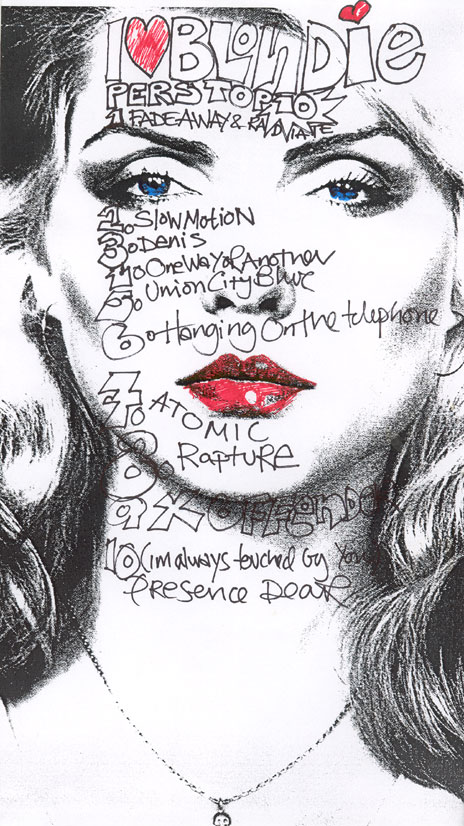 I ♥ BLONDIE
PERS TOP 10
1 FADE AWAY & RADIATE
2. SLOW MOTION
3. DENIS
4. ONE WAY OR ANOTHER
5. UNION CITY BLUE
6. Hanging On the telephone
7. ATOMIC
8. RAPTURE
9. X OFFENDER
10 (im always touched by your
Presence Dear